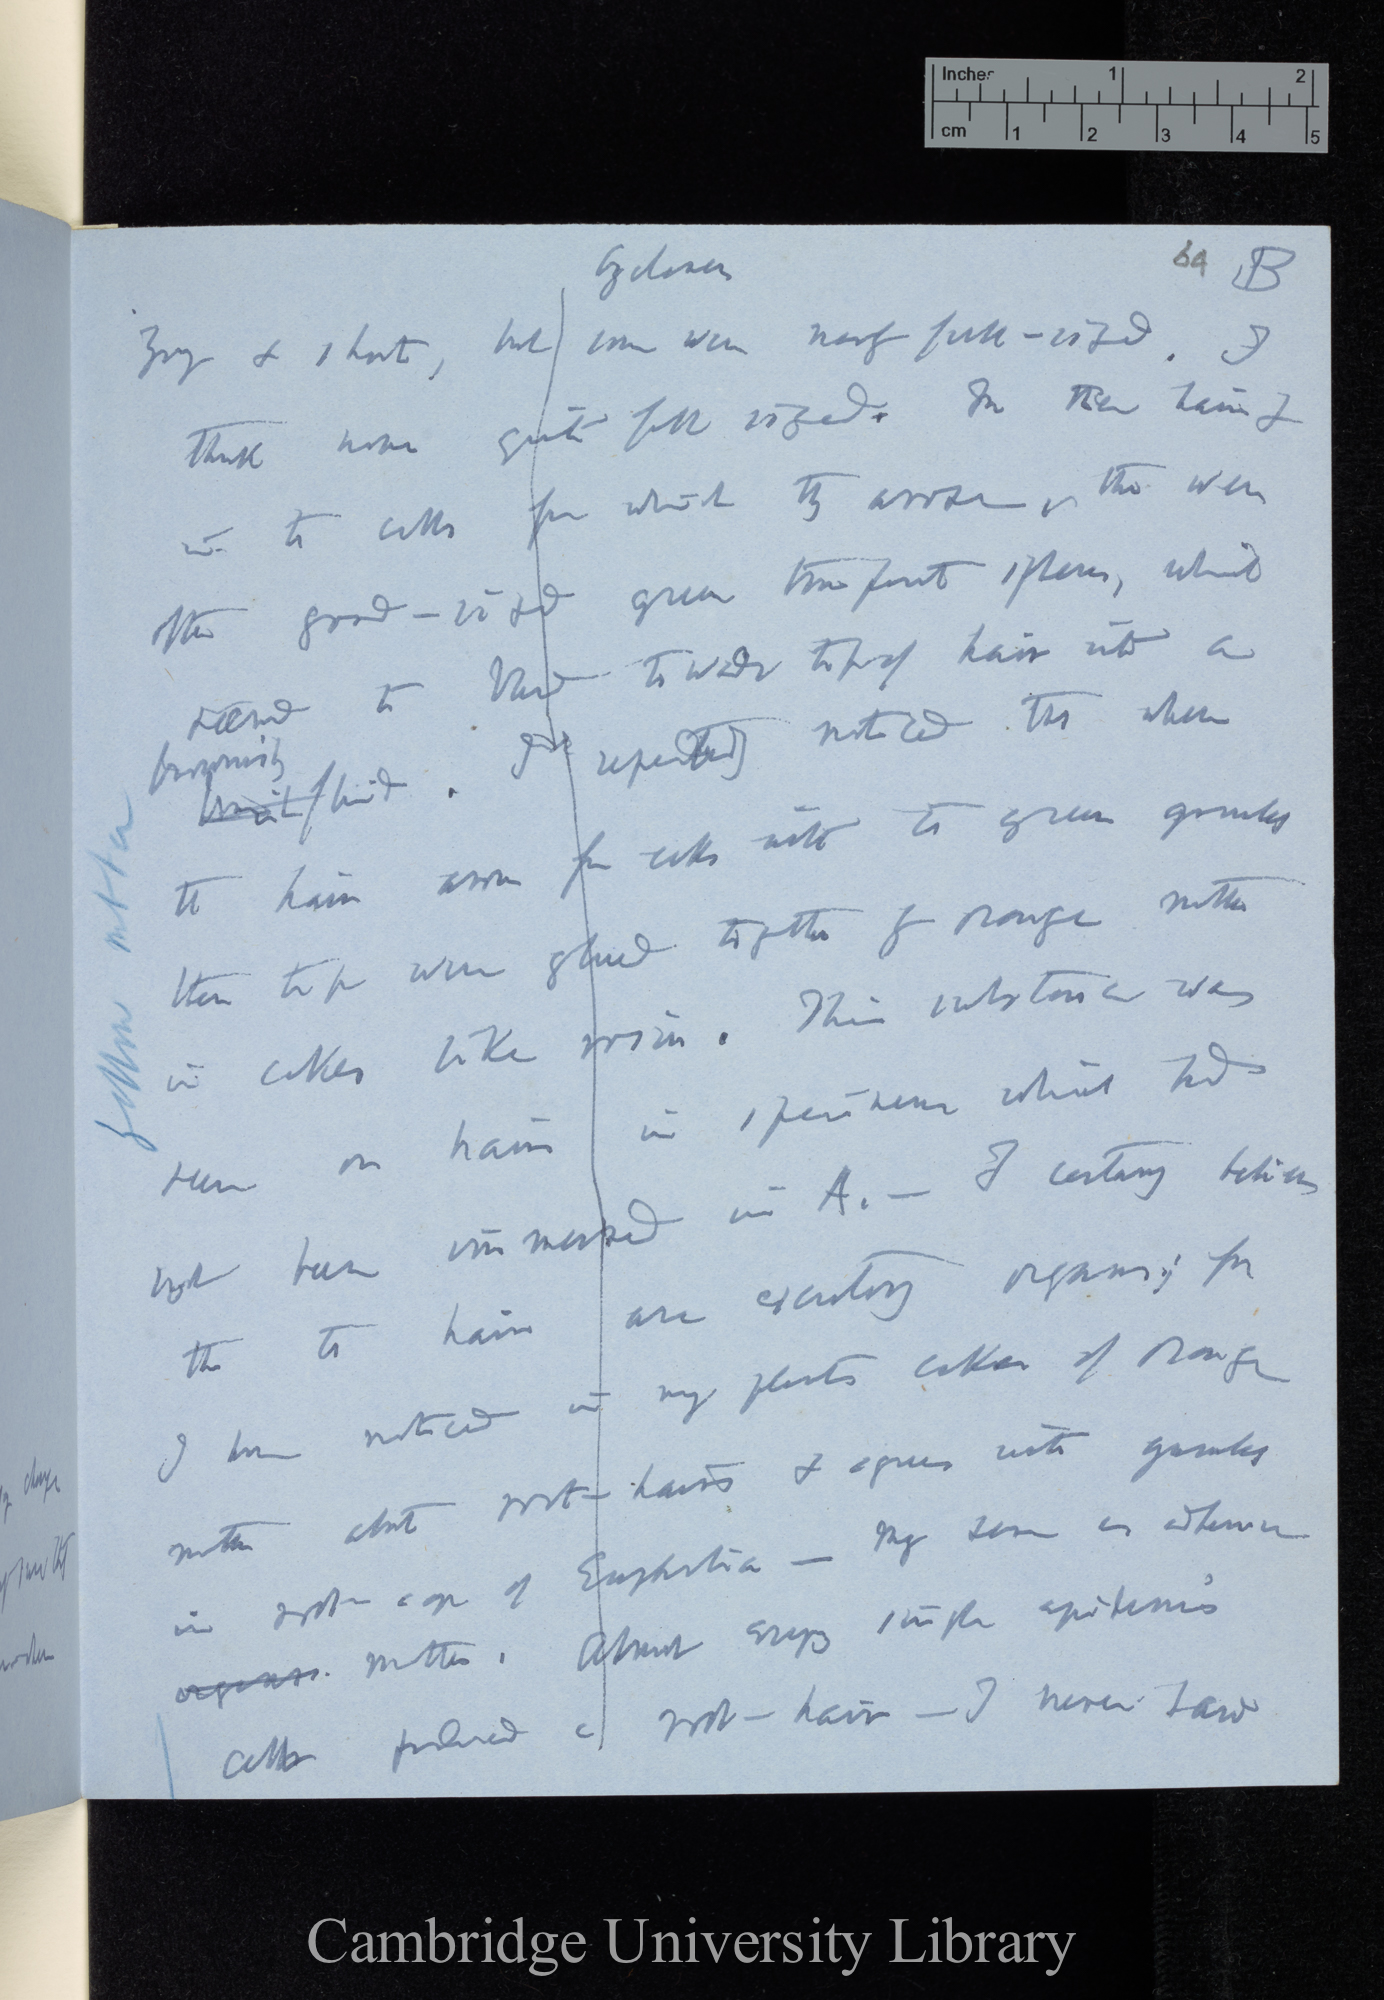 Inches 1 2
cm 1 2 3 4 5
Cyclamen
64 B
& short, but some were nearly full-sized. I
think none quite full sized. In these hairs &
in the cells from which they arose, there were
often good-sized green transparent spheres, which
seemed to blend towards top of hair into a
brownish
fluid. I repeatedly noticed that when
the hairs arose from cells with the green granules
their tips were glued together by orange matter
in cakes like rosin. This substance was
seen on hairs in specimens which had
not been immersed in A. — I certainly believe
that the hairs are excretory organs; for
I have noticed in my plants cakes of orange
matter about root-hairs & agrees with granules
in root-cap of Euphorbia — My son is
organs. matter. Almost every single epidermis
cells produced a root-hair — I never saw
yellow matter
Cambridge University Library